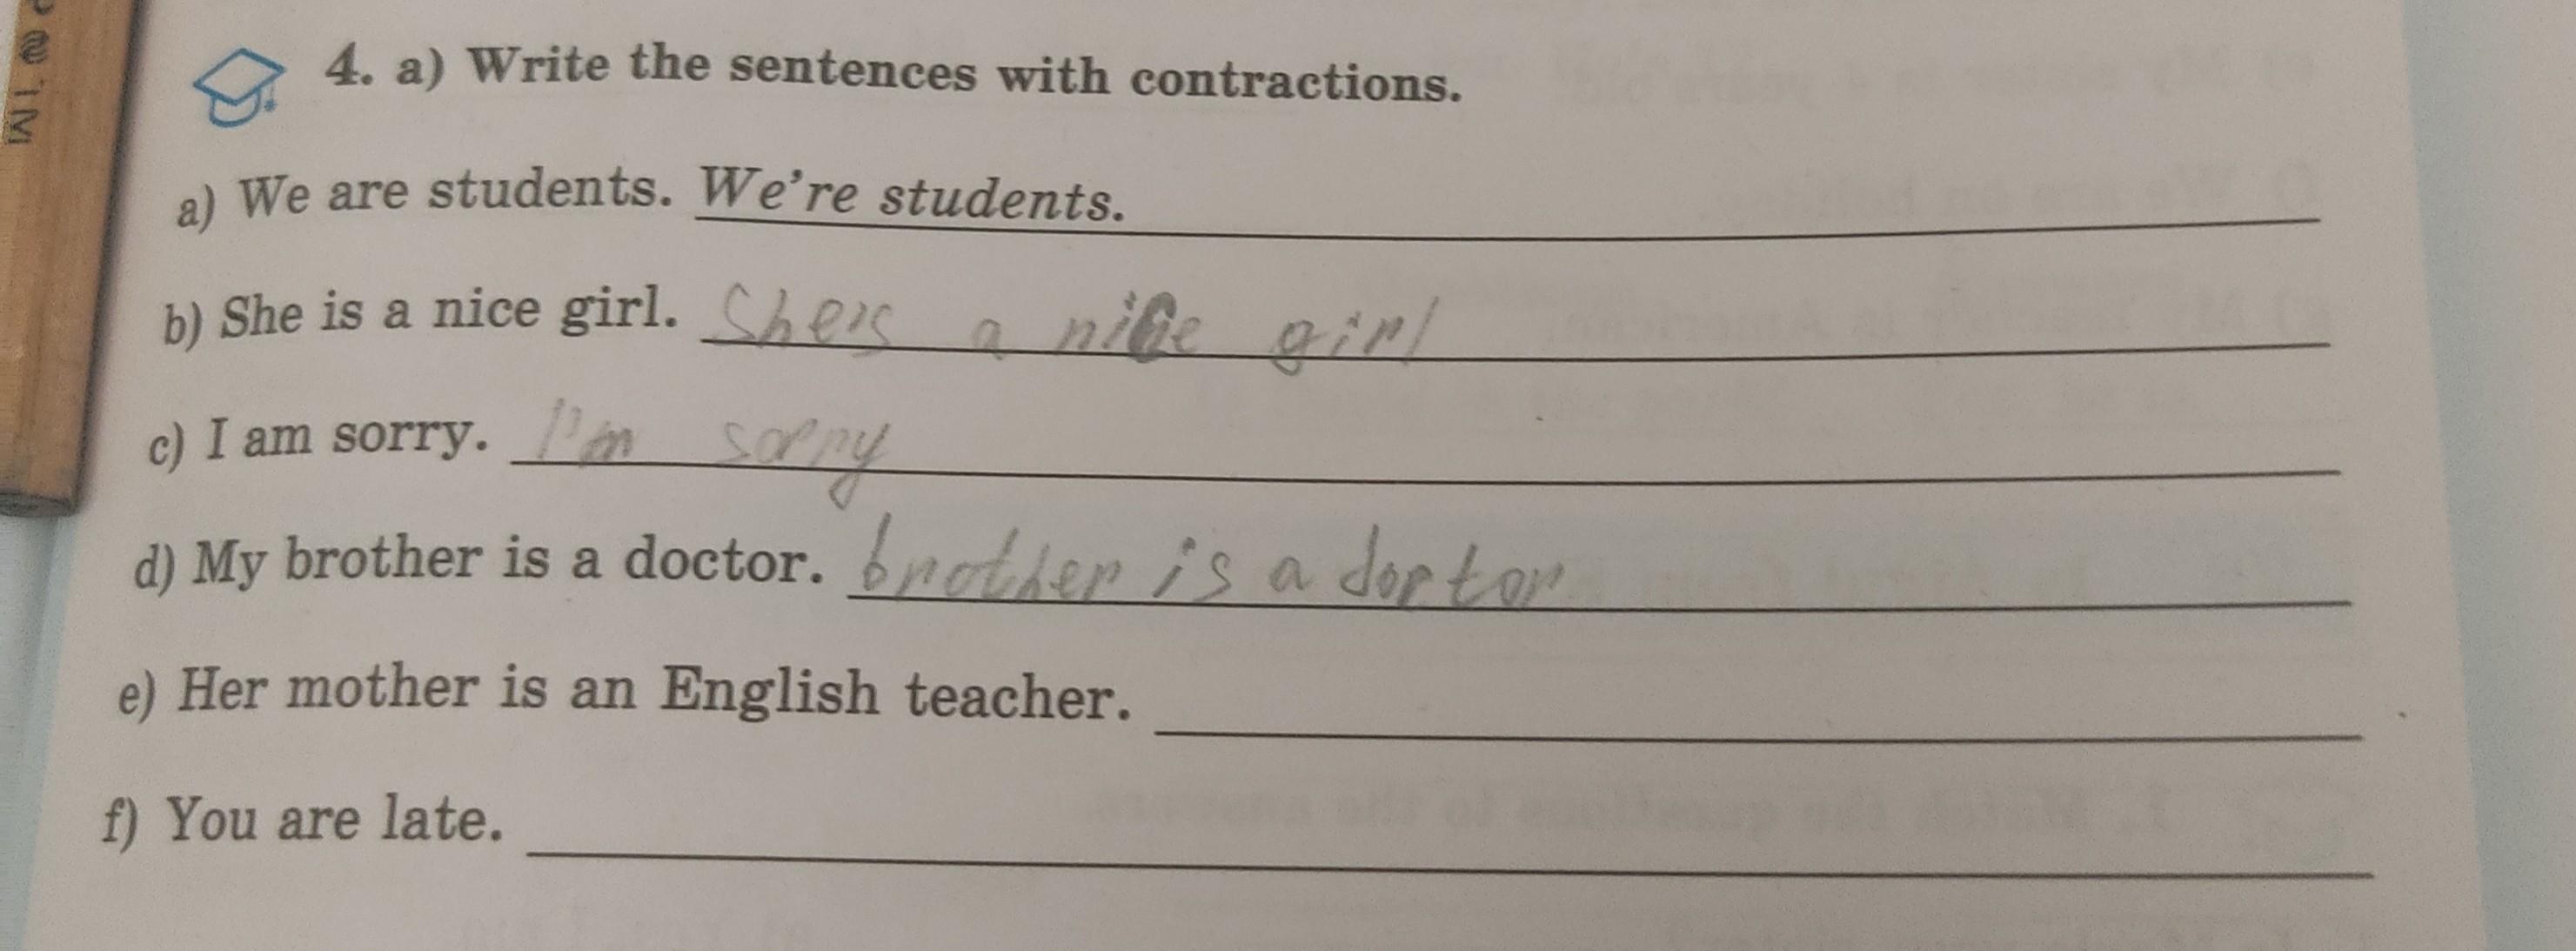 4. a) Write the sentences with contractions.
a) We are students. We're students.
b) She is a nice girl. She's a nice girl
c) I am sorry. I'm sorry
d) My brother is a doctor. brother is a doctor
e) Her mother is an English teacher.
f) You are late.